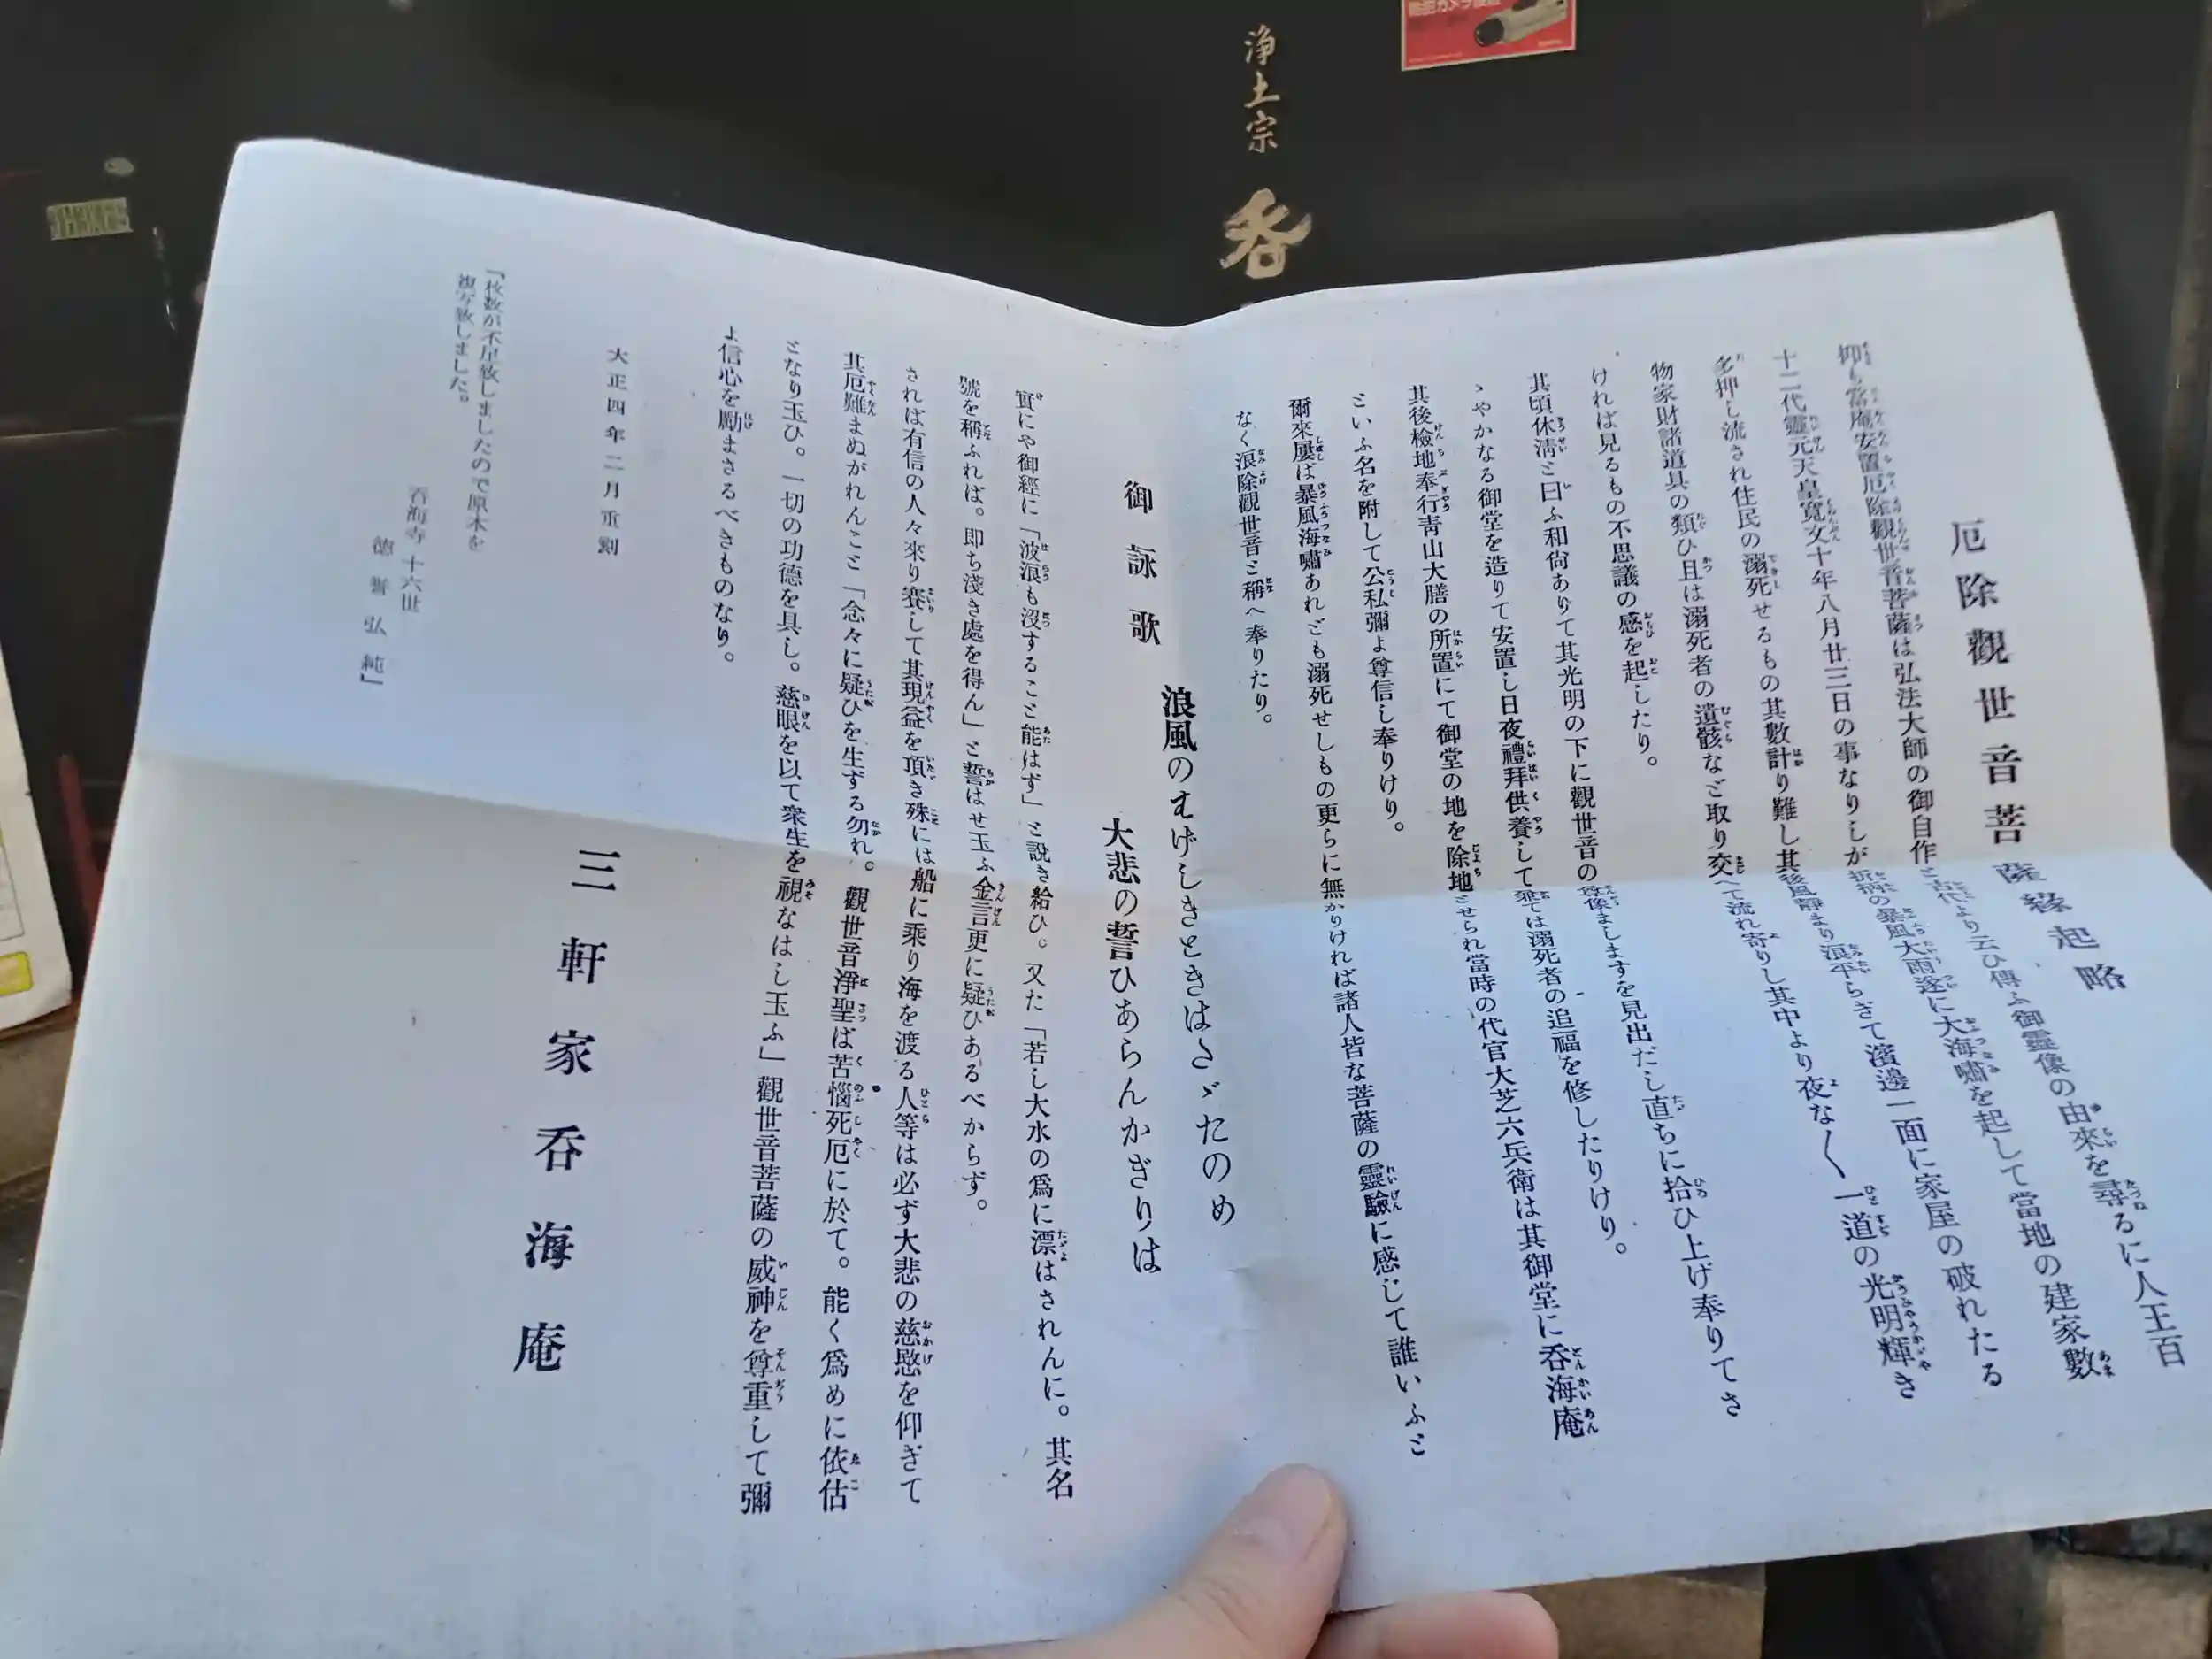 浄土宗
呑
厄除觀世音菩薩緣起略
抑も當庵安置厄除觀世音菩薩は弘法大師の御自作と古代より云ひ傳ふ御靈像の由來を尋るに人王百
十二代靈元天皇寬文十年八月廿三日の事なりしが折柄の暴風大雨遂に大海嘯を起して當地の建家數
多押し流され住民の溺死せるもの其數計り難し其後風靜まり浪平らぎて濱邊一面に家屋の破れたる
物家財諸道具の類ひ且は溺死者の遺骸など取り交へて流れ寄りし其中より夜な〱一道の光明輝き
ければ見るもの不思議の感を起したり。
其頃休淸と曰ふ和尙ありて其光明の下に觀世音の尊像ましますを見出だし直ちに拾ひ上げ奉りてさ
ゝやかなる御堂を造りて安置し日夜禮拜供養して乘ては溺死者の追福を修したりけり。
其後檢地奉行靑山大膳の所置にて御堂の地を除地とせられ當時の代官大芝六兵衛は其御堂に呑海庵
といふ名を附して公私彌よ尊信し奉りけり。
爾來屢ば暴風海嘯あれども溺死せしもの更らに無かりければ諸人皆な菩薩の靈驗に感じて誰いふと
なく浪除觀世音と稱へ奉りたり。
浪風のはげしきときはたゞたのめ
御詠歌
大悲の誓ひあらんかぎりは
實にや御經に「波浪も沒すること能はず」と說き給ひ。又た「若し大水の爲に漂はされんに。其名
號を稱ふれば。即ち淺き處を得ん」と誓はせ玉ふ金言更に疑ひあるべからず。
されば有信の人々來り賽して其現益を頂き殊には船に乘り海を渡る人等は必ず大悲の慈愍を仰ぎて
其厄難まぬがれんこと「念々に疑ひを生ずる勿れ。觀世音淨聖は苦惱死厄に於て。能く爲めに依估
となり玉ひ。一切の功德を具し。慈眼を以て衆生を視なはし玉ふ」觀世音菩薩の威神を尊重して彌
よ信心を勵まさるべきものなり。
大正四年二月重刻
三軒家呑海庵
「枚数が不足致しましたので原本を
複写致しました。
呑海寺十六世
徳誉弘純」